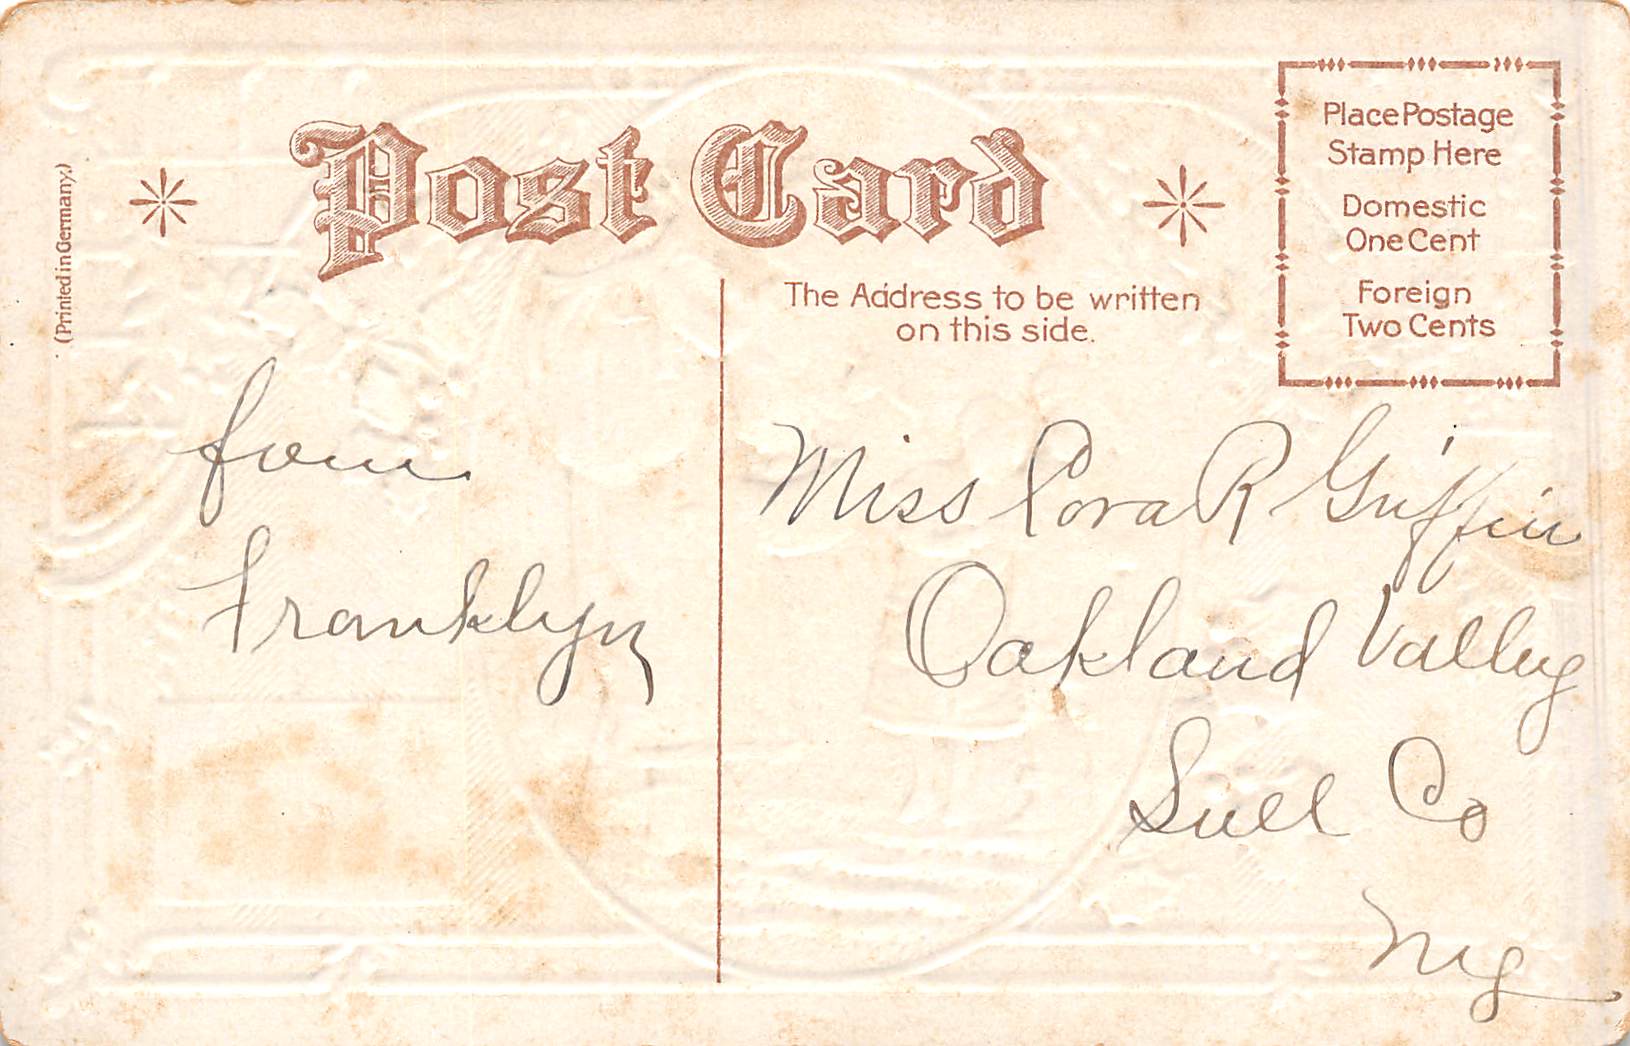 Post Card
(Printed in Germany.)
Place Postage
Stamp Here
Domestic
One Cent
Foreign
Two Cents
The Address to be written
on this side.
from
Franklyn
Miss Cora R Griffin
Oakland Valley
Sull Co
Ny